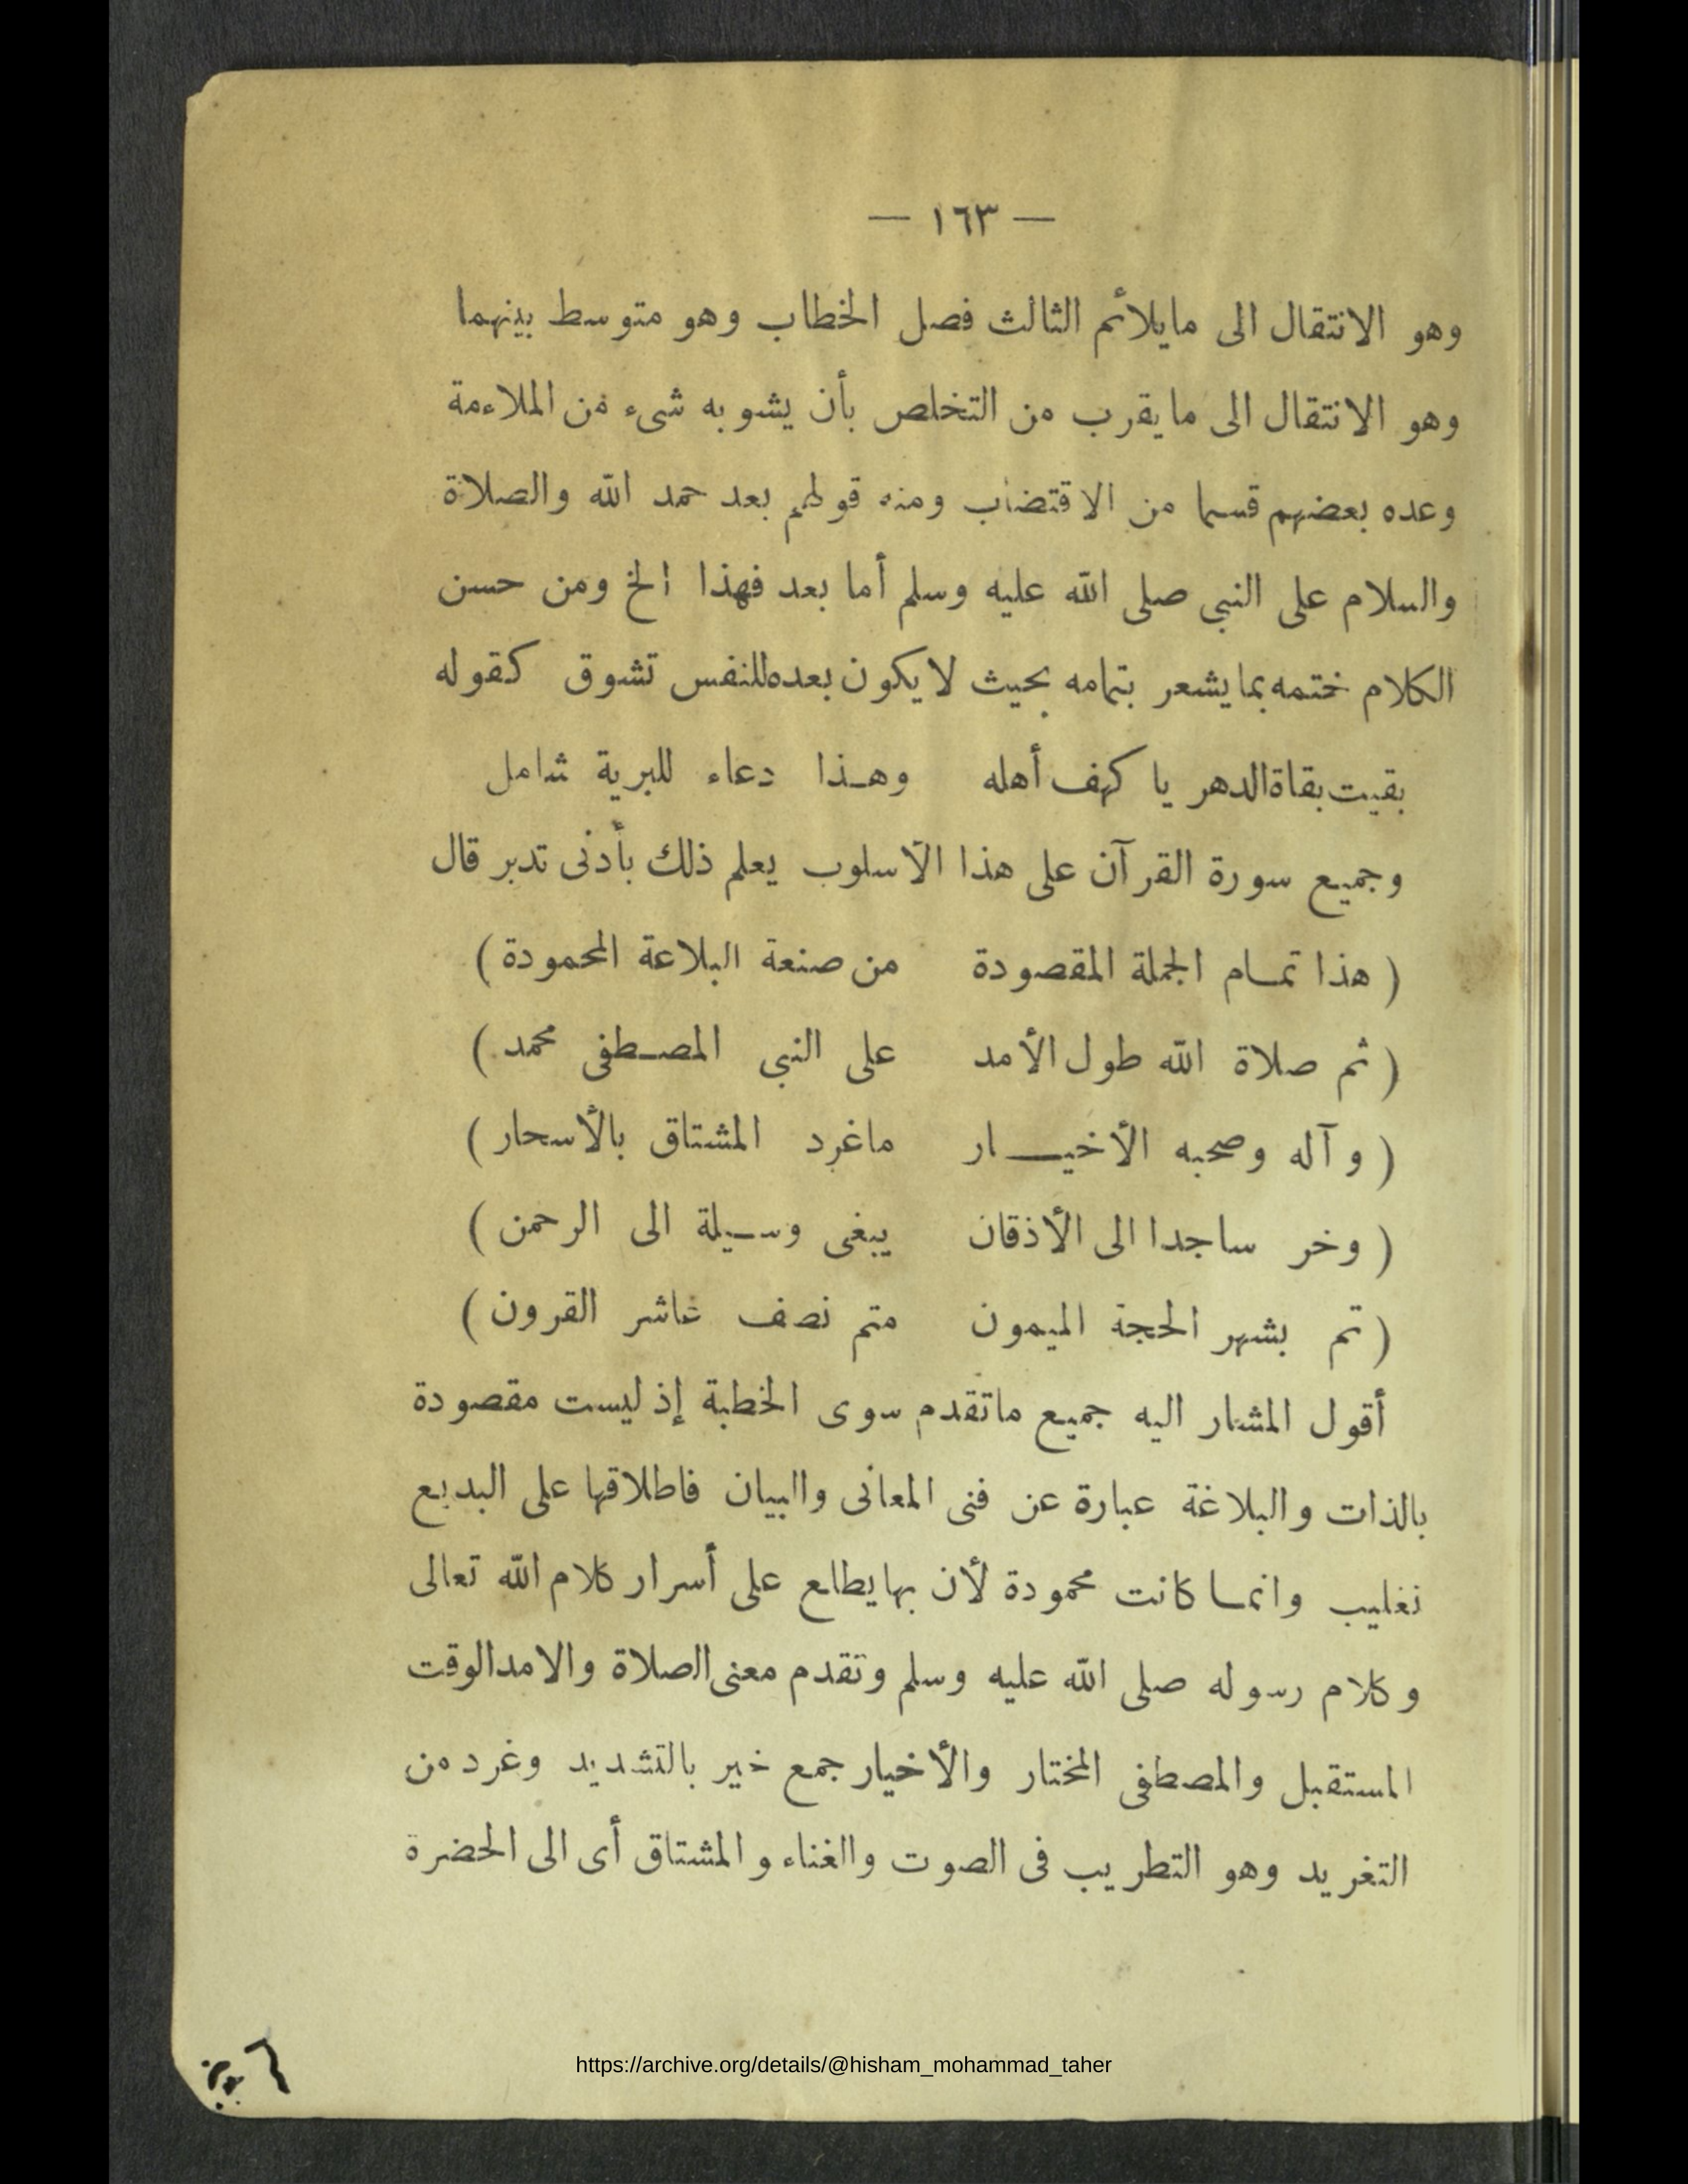 — ١٦٣ —
وهو الانتقال الى مايلائم الثالث فصل الخطاب وهو متوسط بينهما
وهو الانتقال الى مايقرب من التخلص بأن يشوبه شىء من الملاءمة
وعده بعضهم قسما من الاقتضاب ومنه قولهم بعد حمد الله والصلاة
والسلام على النبى صلى الله عليه وسلم أما بعد فهذا الخ ومن حسن
الكلام ختمه بما يشعر بتمامه بحيث لايكون بعده للنفس تشوق كقوله
بقيت بقاة الدهر يا كهف أهله وهـذا دعاء للبرية شامل
وجميع سورة القرآن على هذا الأسلوب يعلم ذلك بأدنى تدبر قال
( هذا تمـام الجملة المقصودة من صنعة البلاعة المحمودة )
( ثم صلاة الله طول الأمد على النبى المصـطفى محمد )
( وآله وصحبه الأخيـــار ماغرد المشتاق بالأسحار )
( وخر ساجدا الى الأذقان يبغى وسـيلة الى الرحمن )
( تم بشهر الحجة الميمون متم نصف عاشر القرون )
أقول المشار اليه جميع ماتقدم سوى الخطبة إذ ليست مقصودة
بالذات والبلاغة عبارة عن فنى المعانى والبيان فاطلاقها على البديع
تغليب وانمـا كانت محمودة لأن بها يطلع على أسرار كلام الله تعالى
وكلام رسوله صلى الله عليه وسلم وتقدم معنى الصلاة والامد الوقت
المستقبل والمصطفى المختار والأخيار جمع خير بالتشديد وغرد من
التغريد وهو التطريب فى الصوت والغناء والمشتاق أى الى الحضرة
https://archive.org/details/@hisham_mohammad_taher